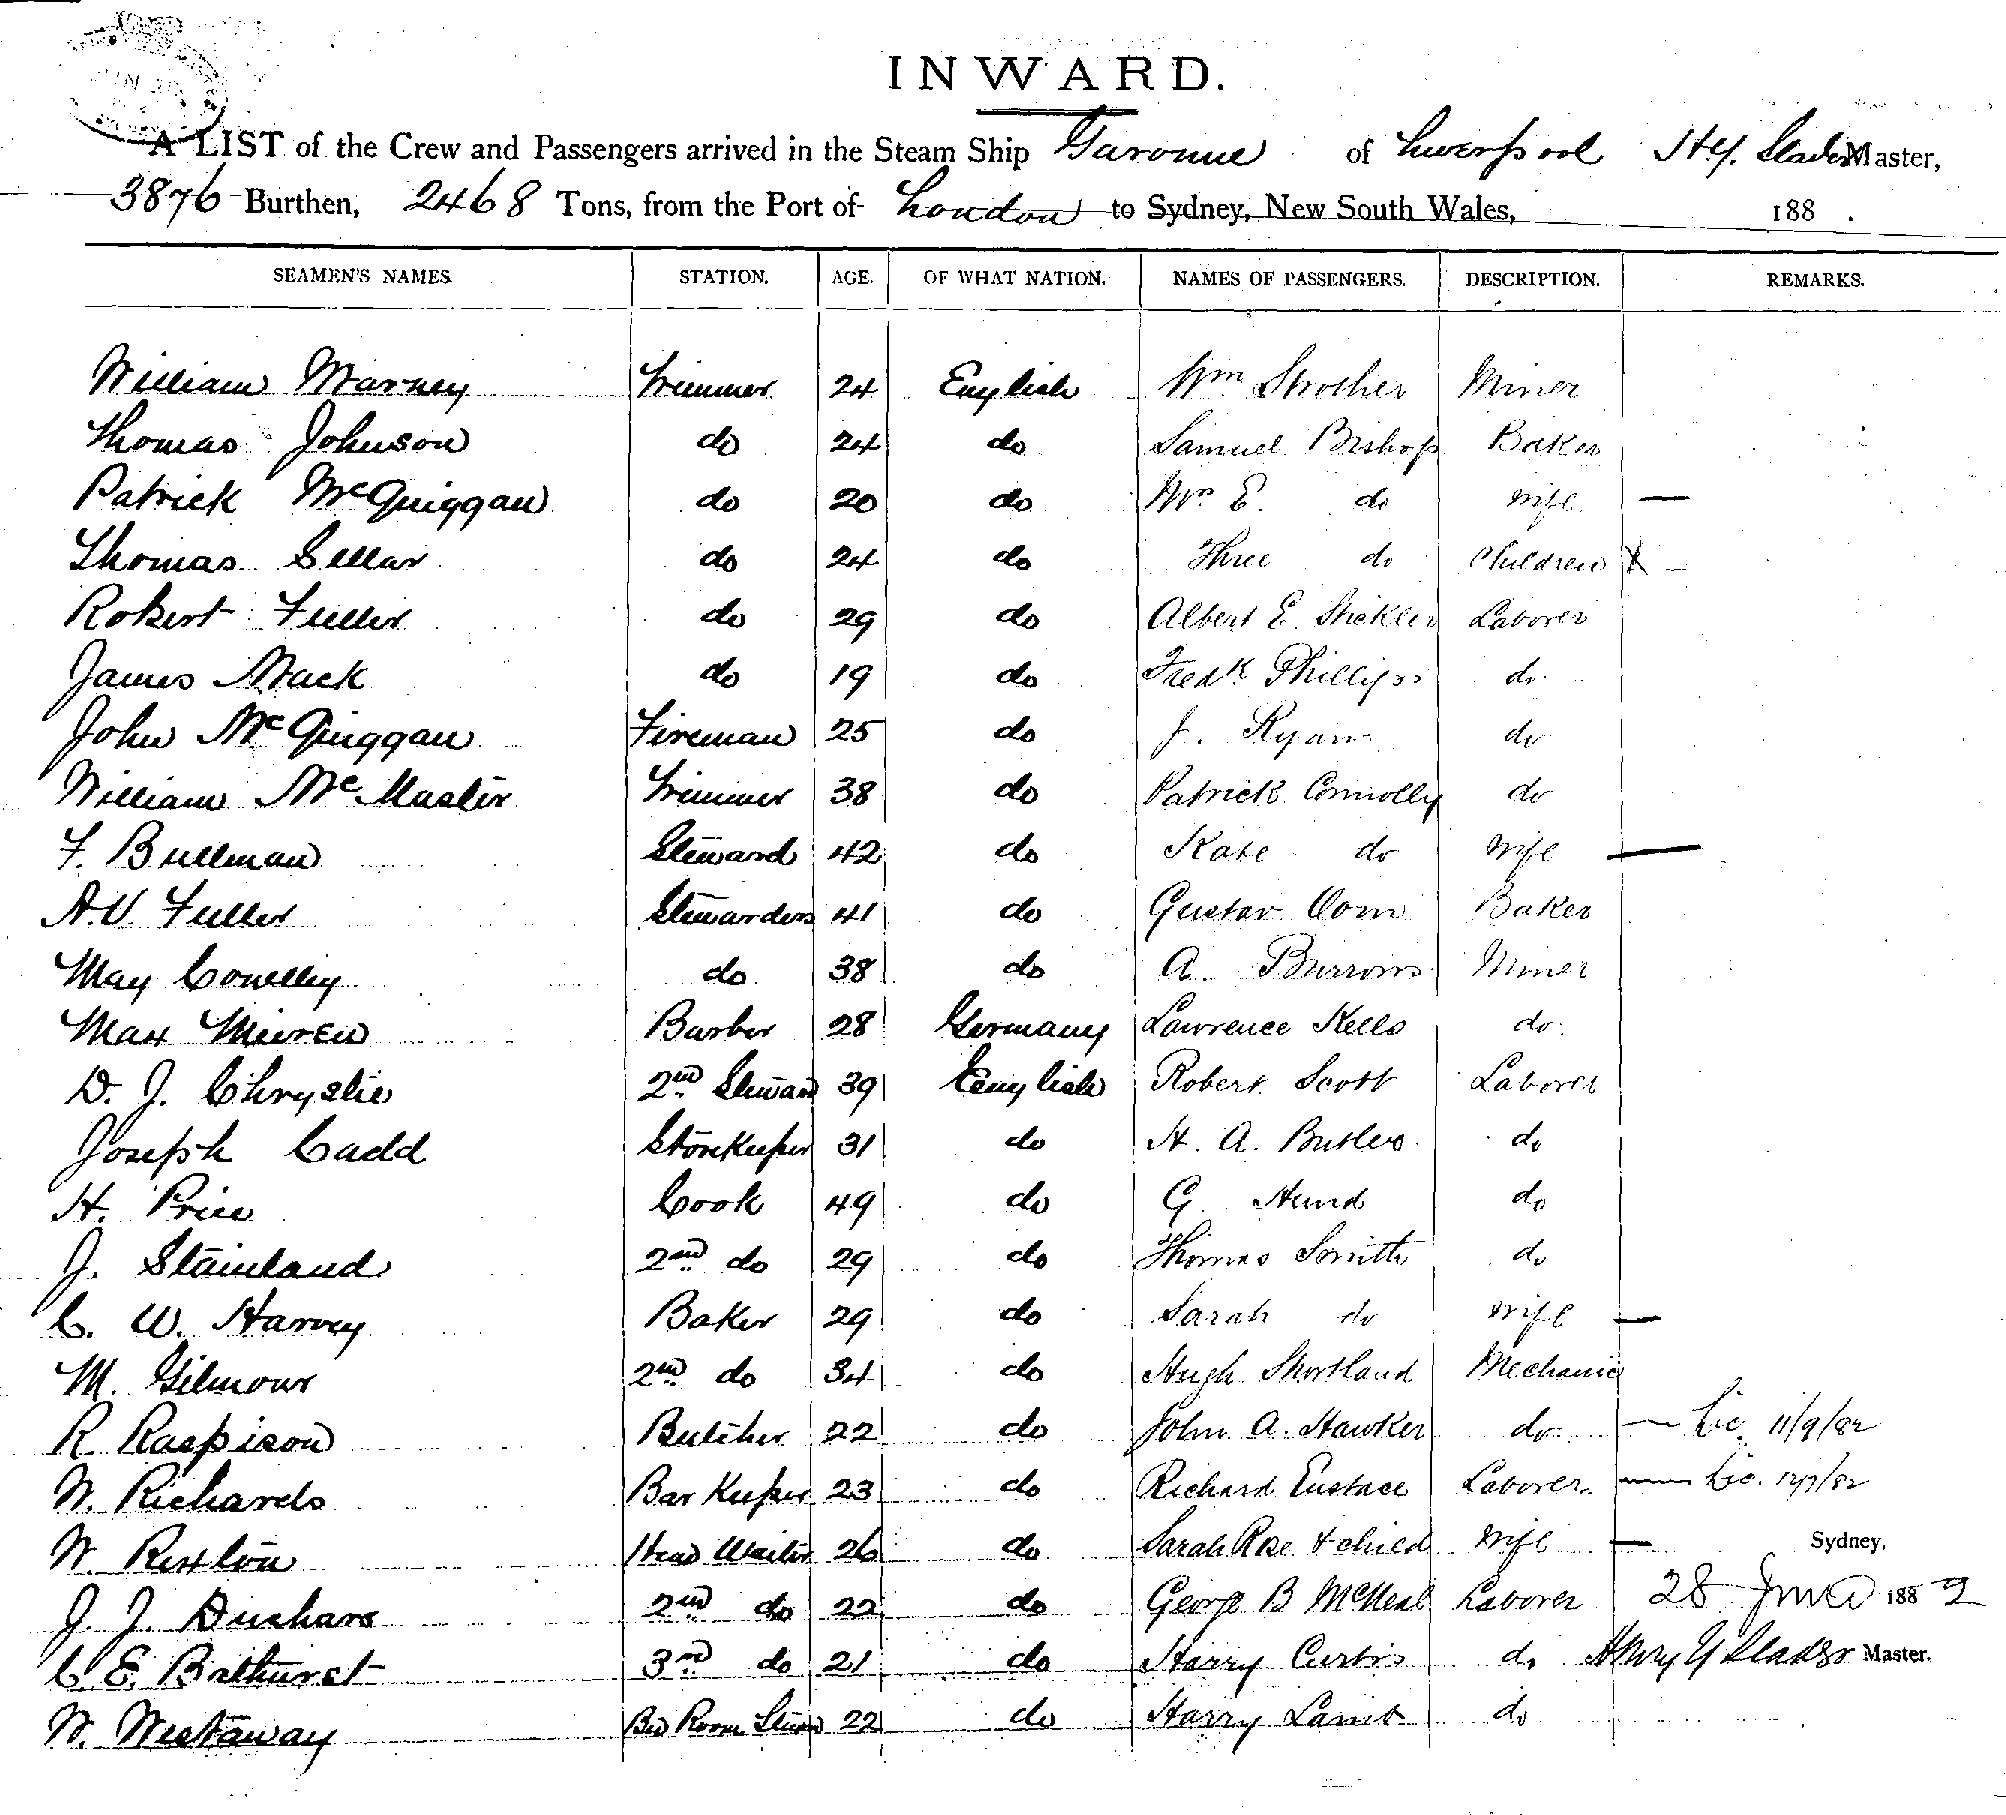 INWARD.
A LIST of the Crew and Passengers arrived in the Steam Ship Garonne of Liverpool Hy. Slader Master,
3876 Burthen, 2468 Tons, from the Port of London to Sydney, New South Wales, 188 .
SEAMEN'S NAMES. STATION. AGE. OF WHAT NATION. NAMES OF PASSENGERS. DESCRIPTION. REMARKS.
William Marney Trimmer 24 English Wm Strother Miner
Thomas Johnson do 24 do Samuel Bishop Baker
Patrick McQuiggan do 20 do Mrs E. do Wife —
Thomas Sellar do 24 do Three do Children X –
Robert Fuller do 29 do Albert E. Stickler Laborer
James Mack do 19 do Fredk Phillips do
John McQuiggan Fireman 25 do J. Ryan do
William McMaster Trimmer 38 do Patrick Connolly do
F. Bullman Steward 42 do Kate do Wife —
A.V. Fuller Stewardess 41 do Gustav Baker
May Conelley do 38 do A. Burrows Miner
Max Barber 28 Germany Lawrence Kells do
D. J. Chrystie 2nd Steward 39 English Robert Scott Laborer
Joseph Cadd Storekeeper 31 do H. A. Butler do
H. Price Cook 49 do G. Hund do
J. Stainland 2nd do 29 do Thomas Smith do
C. W. Harvey Baker 29 do Sarah do Wife —
M. Gilmour 2nd do 34 do Hugh Shortland Mechanic
R. Raspison Butcher 22 do John A. Hawker do — Lic. 11/9/82
W. Richards Bar Keeper 23 do Richard Eustace Laborer — Lic.
W. Rixton Head Waiter 26 do Sarah Rose & child Wife — Sydney,
J. J. 2nd do 22 do George B McNeal Laborer 28 June 1882
C E. Bathurst 3rd do 21 do Harry Curtis do Henry Slader Master.
W. Westaway Bed Room Steward 22 do Harry Lamb do